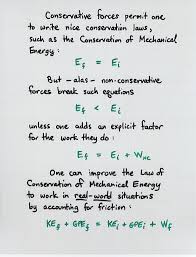 Conservative forces permit one
to write nice conservation laws,
such as the Conservation of Mechanical
Energy:
E_f = E_i
But - alas - non-conservative
forces break such equations
E_f < E_i
unless one adds an explicit factor
for the work they do:
E_f = E_i + W_NC
One can improve the Law of
Conservation of Mechanical Energy
to work in real-world situations
by accounting for friction:
KE_f + GPE_f = KE_i + GPE_i + W_f